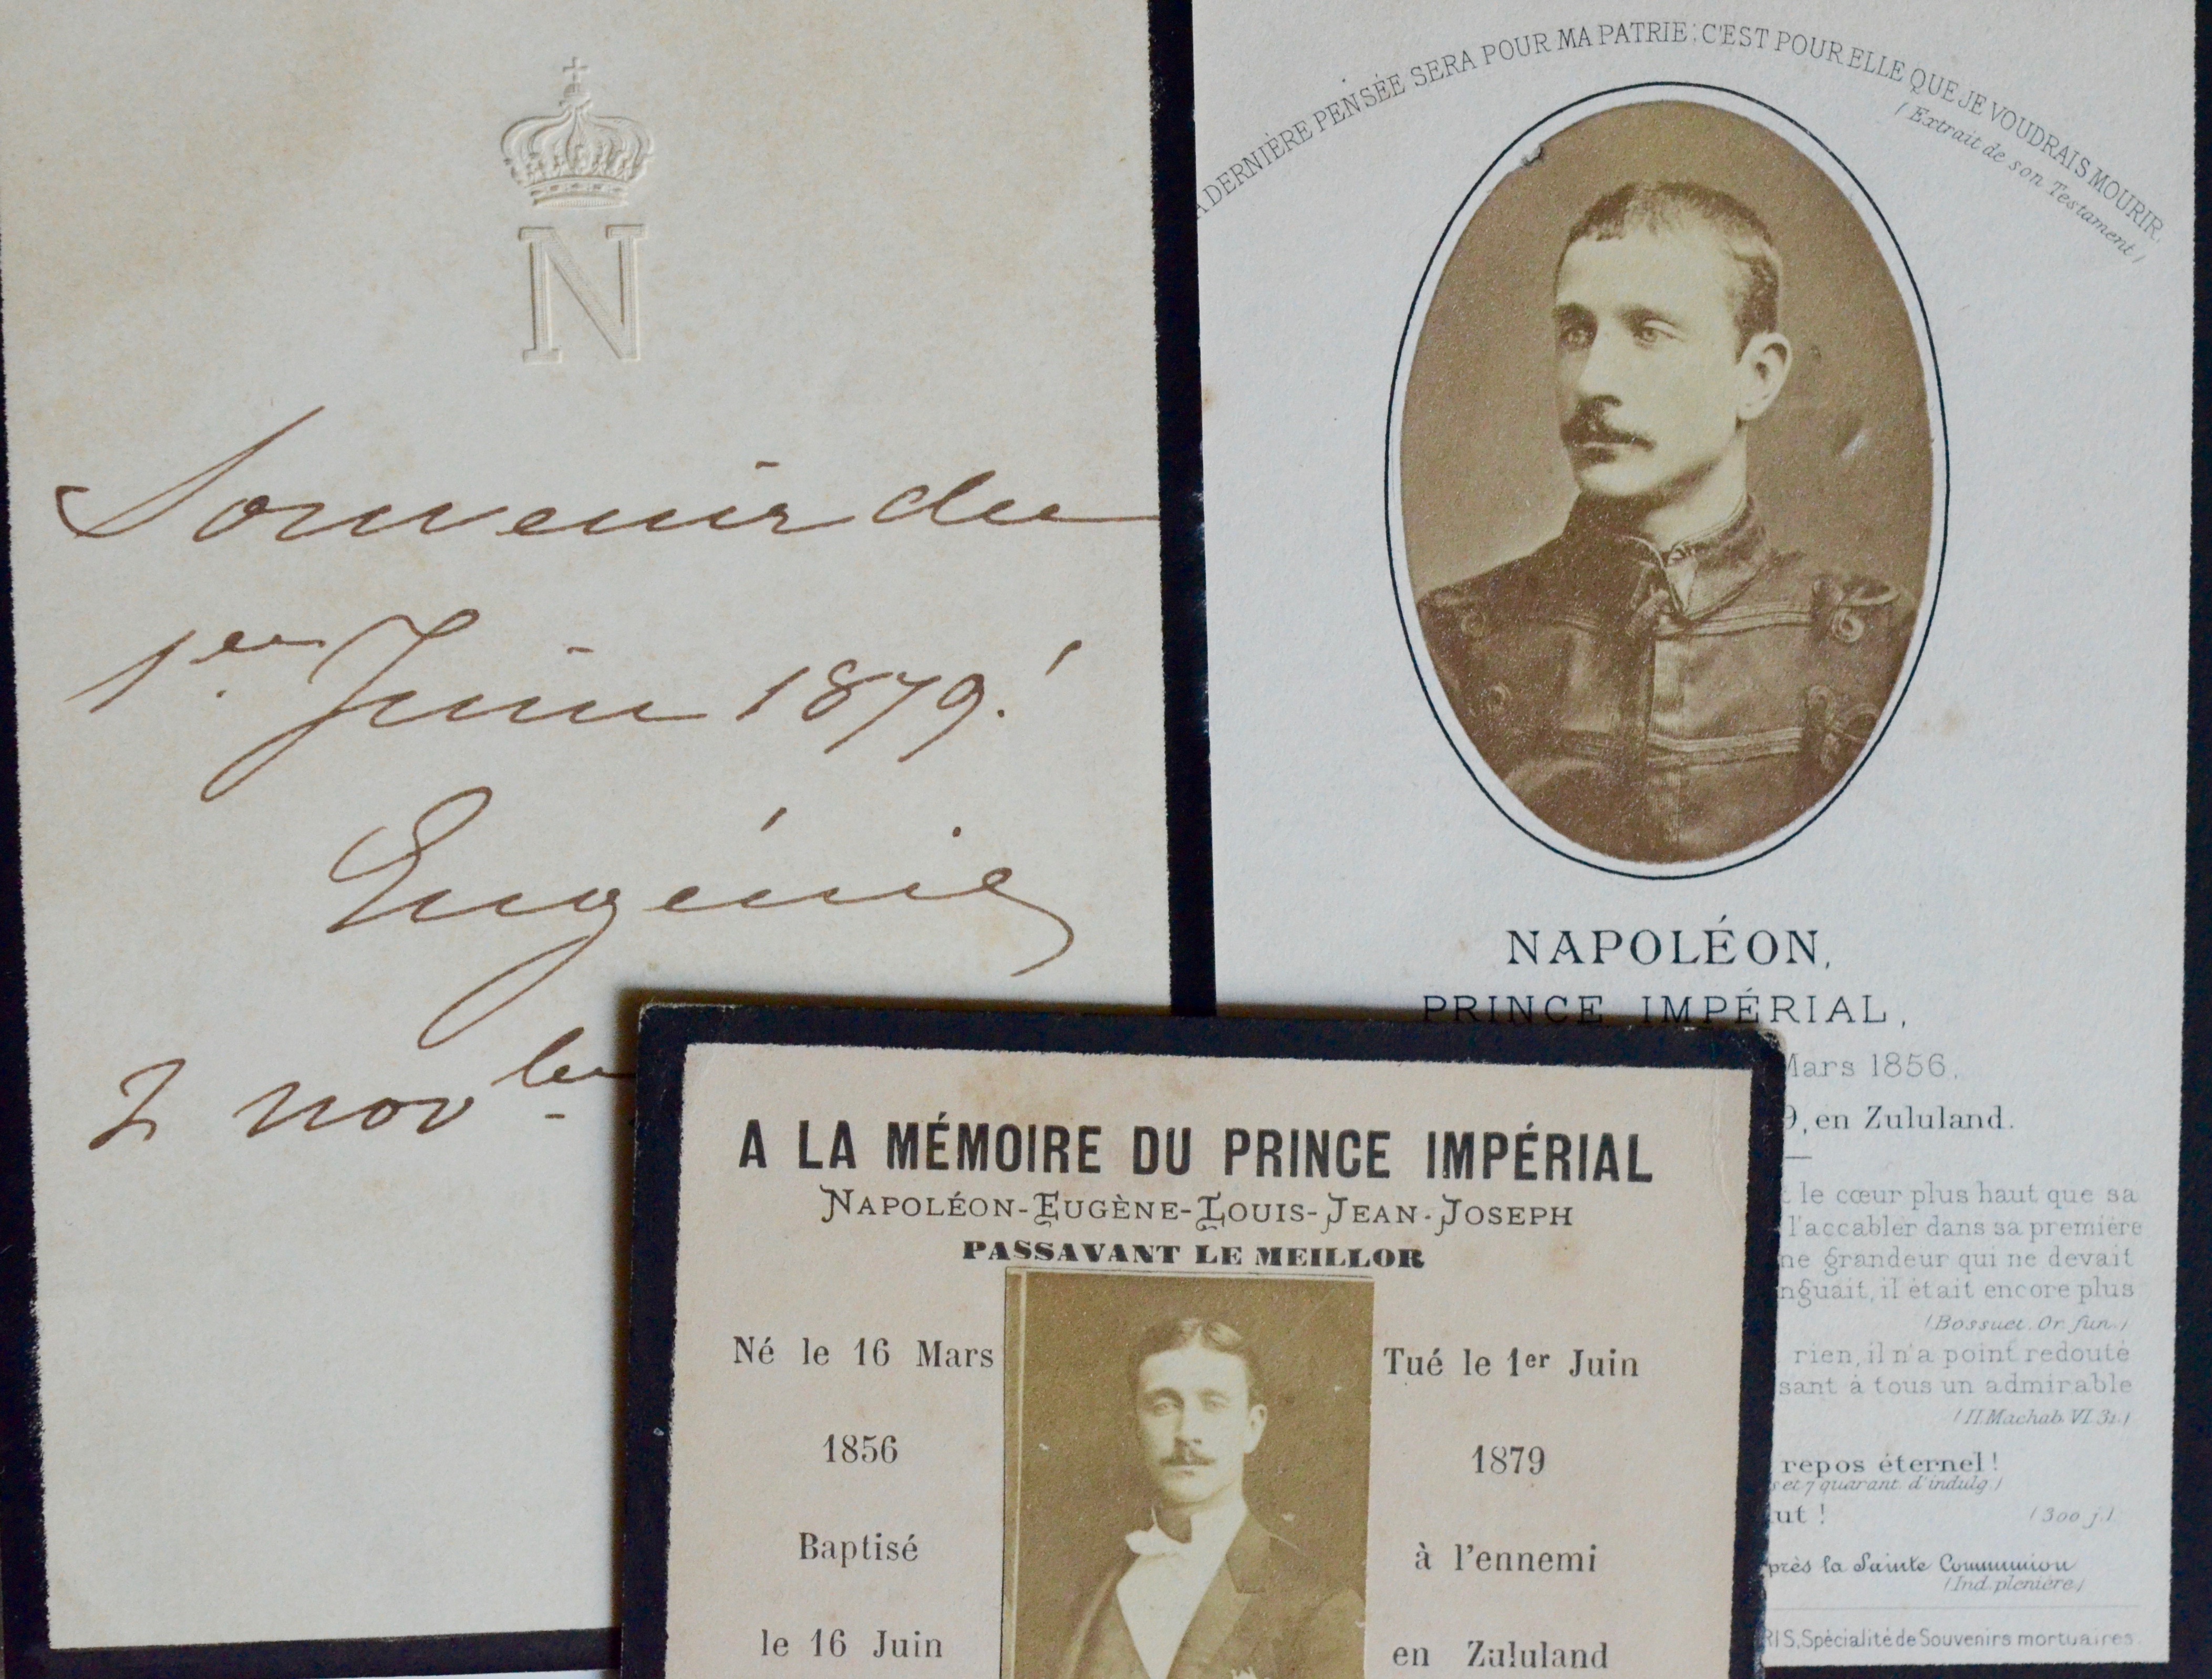 N
Souvenir du
1er Juin 1879!
Eugénie
2 novbre
DERNIÈRE PENSÉE SERA POUR MA PATRIE: C'EST POUR ELLE QUE JE VOUDRAIS MOURIR.
(Extrait de son Testament)
NAPOLÉON,
PRINCE IMPÉRIAL,
Mars 1856.
9, en Zululand.
le cœur plus haut que sa
l'accabler dans sa première
ne grandeur qui ne devait
nguait, il était encore plus
(Bossuet. Or. fun.)
rien, il n'a point redouté
sant à tous un admirable
(II Machab. VI. 31.)
repos éternel!
s et 7 quarant. d'indulg.)
ut! (300 j.)
près la Sainte Communion
(Ind. plenière)
RIS, Spécialité de Souvenirs mortuaires.
A LA MÉMOIRE DU PRINCE IMPÉRIAL
NAPOLÉON-EUGÈNE-LOUIS-JEAN-JOSEPH
PASSAVANT LE MEILLOR
Né le 16 Mars
1856
Baptisé
le 16 Juin
Tué le 1er Juin
1879
à l'ennemi
en Zululand